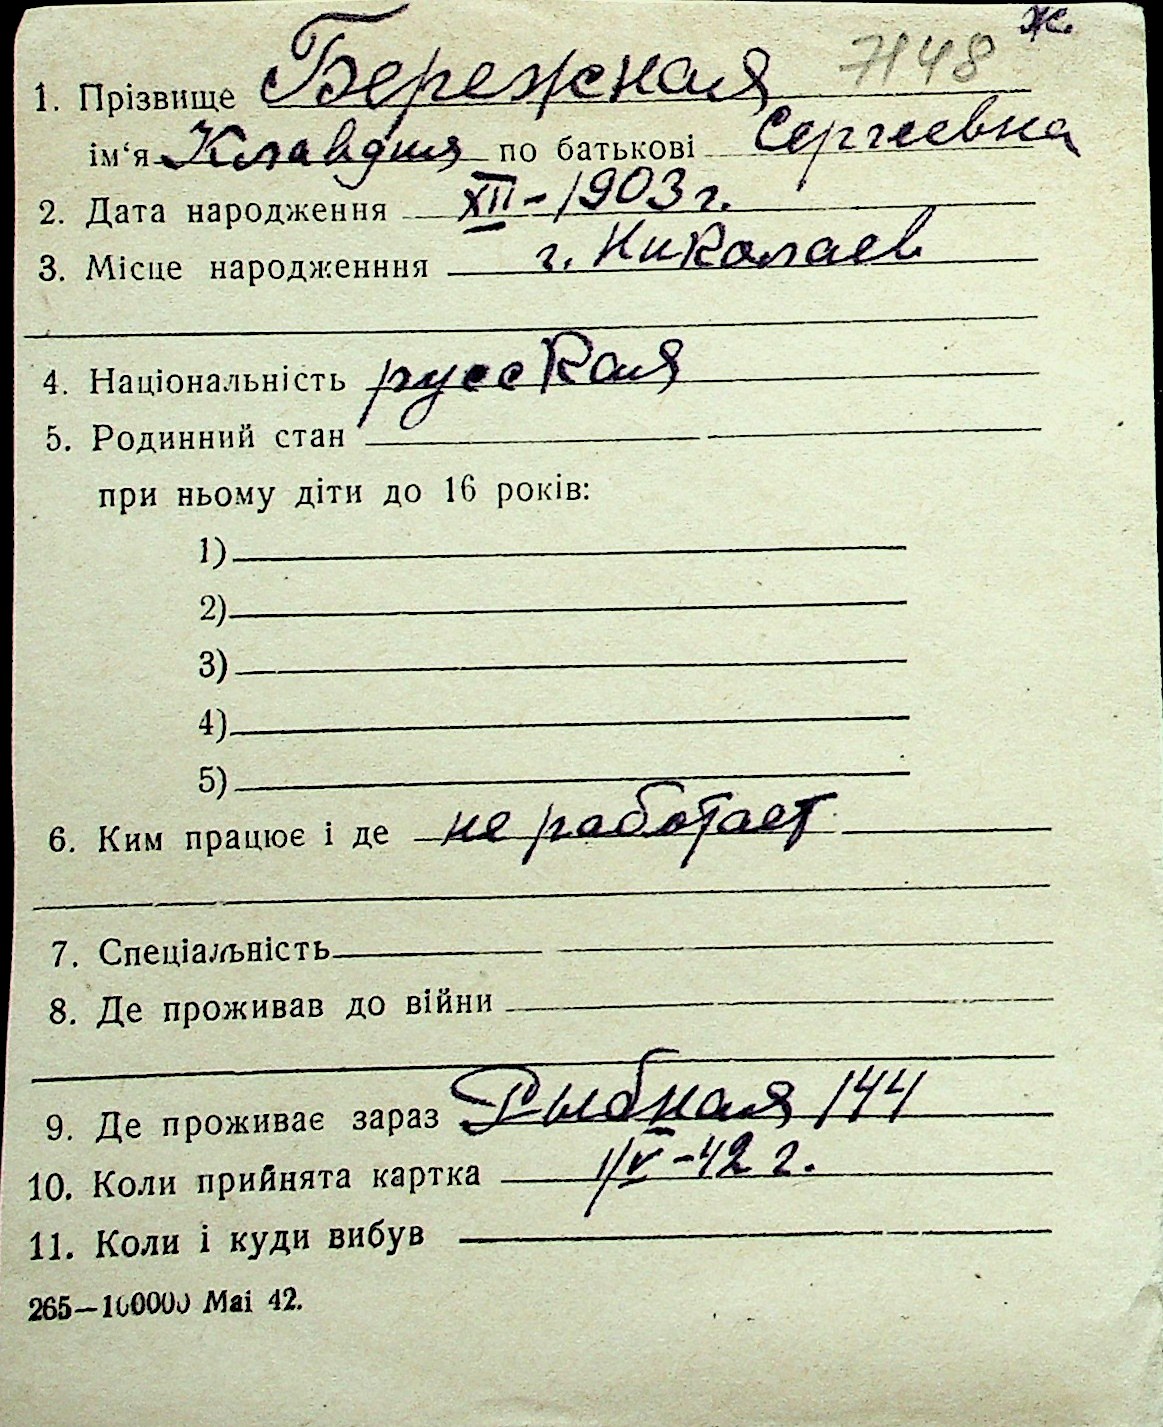 ж.
7148
1. Прізвище Бережная
ім‘я Клавдия по батькові Сергеевна
2. Дата народження XII-1903 г.
3. Місце народженння г. Николаев
4. Національність русская
5. Родинний стан
при ньому діти до 16 років:
1)
2)
3)
4)
5)
6. Ким працює і де не работает
7. Спеціальність
8. Де проживав до війни
9. Де проживає зараз Рыбная 144
10. Коли прийнята картка 1/V-42 г.
11. Коли і куди вибув
265—100000 Маі 42.